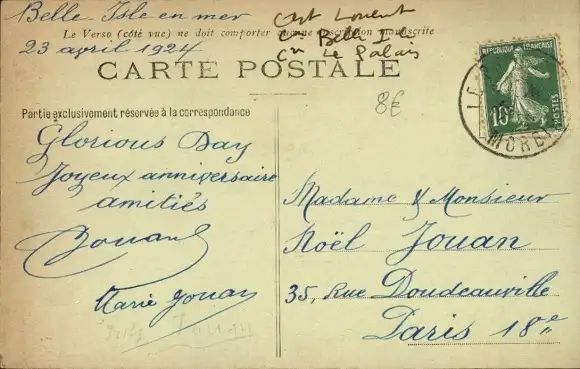 Belle Isle en mer
23 avril 1924
Cant Lorient
Cn Belle I
Cn Le Palais
Le Verso (côté vue) ne doit comporter aucune description manuscrite
CARTE POSTALE
8€
Partie exclusivement réservée à la correspondance
Glorious Day
Joyeux anniversaire
amitiés
Jouan
Marie Jouan
RÉPUBLIQUE FRANÇAISE
10c
POSTES
LE
MORB
Madame & Monsieur
Noël Jouan
35, Rue Doudeauville
Paris 18e